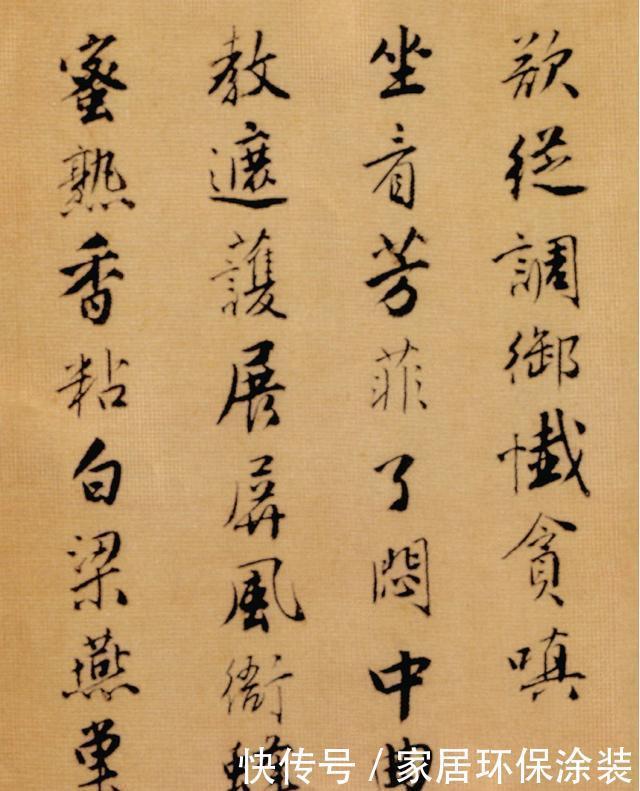 欲從調御懺貪嗔
坐看芳菲了悶中曲
教遮護展屏風衙蜂
蜜熟香粘白梁燕巢
快传号 / 家居环保涂装